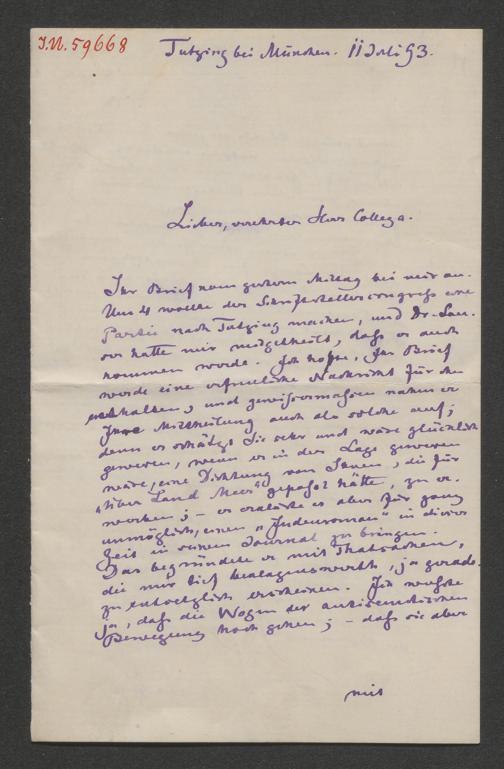 I.N. 59668
Tutzing bei München. 11 Juli 93.
Lieber, verehrter Herr Collega.
Ihr Brief kam gestern Mittag bei mir an.
Um 4 wollte der Schriftstellercongress eine
Partie nach Tutzing machen, und Dr.
hatte mir mitgetheilt, dass er auch
kommen werde. Ich hoffte, Ihr Brief
werde eine erfreuliche Nachricht für ihn
enthalten, und gewissermassen nahm er
Ihre Mittheilung auch als solche auf;
denn er schätzt Sie sehr und wäre glücklich
gewesen, wenn er in der Lage gewesen
wäre, eine Dichtung von Ihnen, die für
"Über Land Meer" gepasst hätte, zu er-
werben; – er erklärte es aber für ganz
unmöglich, einen "Judenroman" in dieser
Zeit in seinem Journal zu bringen.
Das begründete er mit Thatsachen,
die mir tief beklagenswerth, ja gerade
zu entsetzlich erscheinen. Ich wusste
ja, dass die Wogen der antisemitischen
Bewegung hoch gehen; – dass sie aber
mit